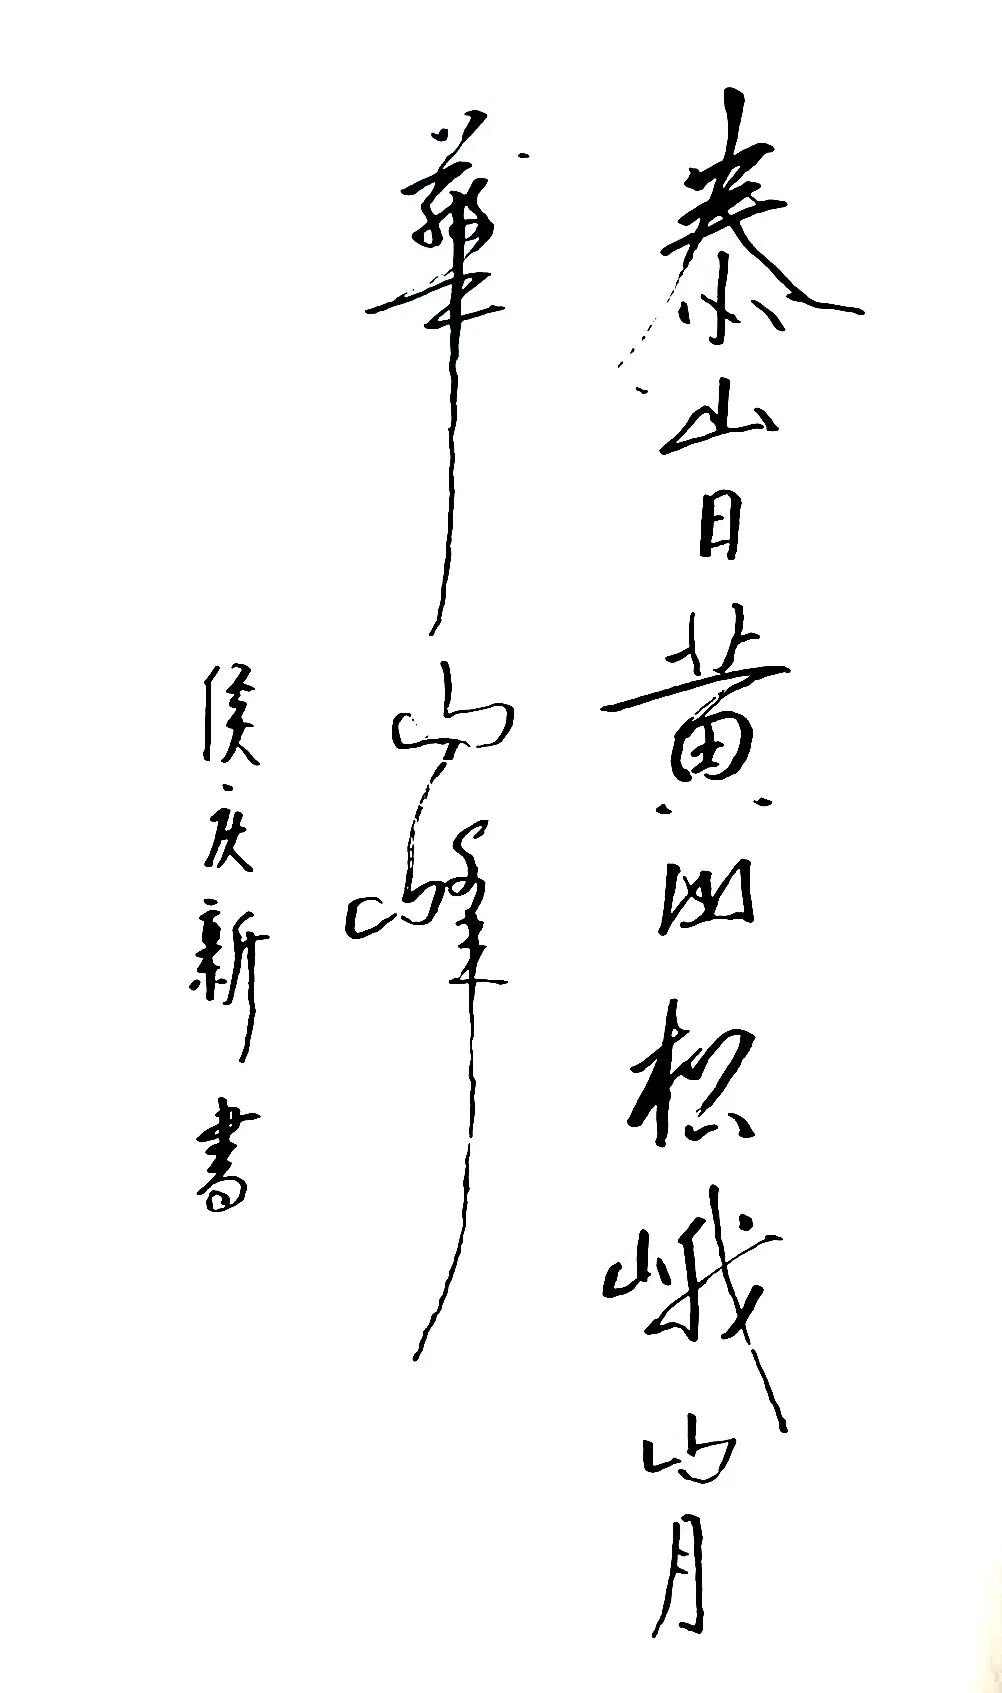 泰山日黄山松峨山月
華山峰
侯庆新書